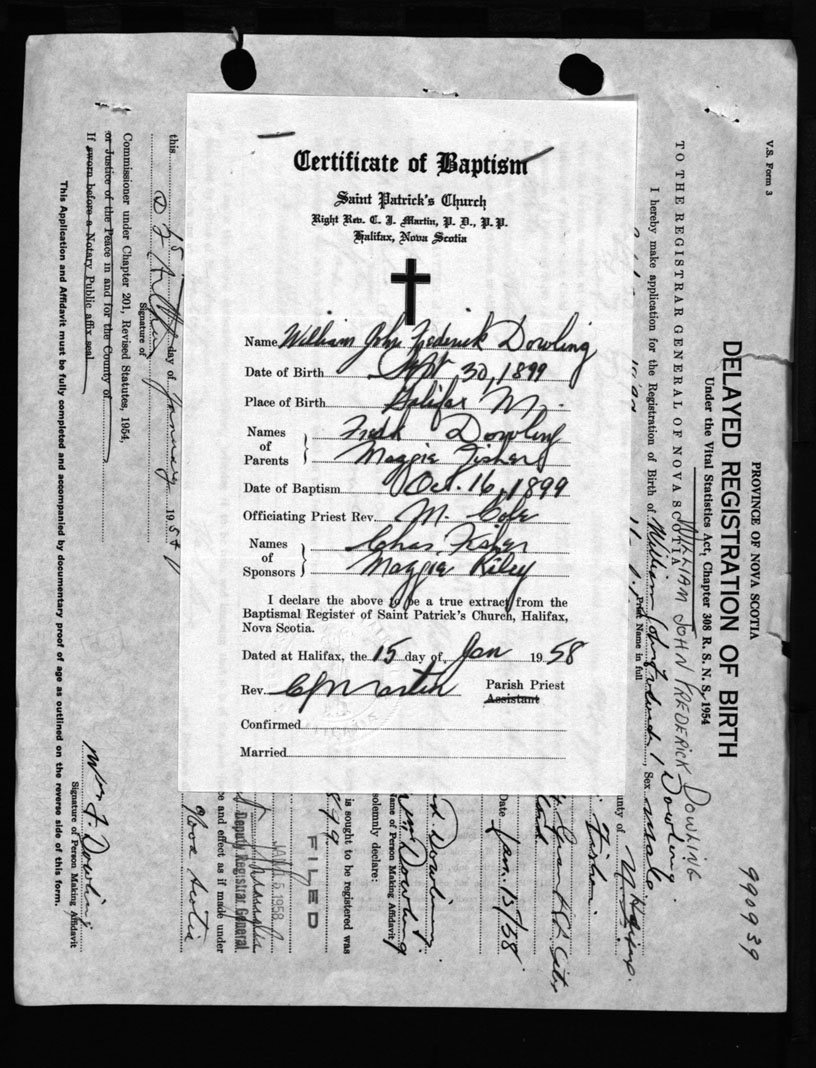 Certificate of Baptism
Saint Patrick's Church
Right Rev. C. J. Martin, P. D., P. P.
Halifax, Nova Scotia
Name William John Frederick Dowling
Date of Birth Sept 30, 1899
Place of Birth Halifax N.S.
Names of Parents } Fredk Dowling
Maggie Fisher
Date of Baptism Oct. 16, 1899
Officiating Priest Rev. M. Cole
Names of Sponsors } Chas. Fisher
Maggie Riley
I declare the above to be a true extract from the
Baptismal Register of Saint Patrick's Church, Halifax,
Nova Scotia.
Dated at Halifax, the 15 day of Jan 1958
Rev. C J Martin Parish Priest
Assistant
Confirmed
Married
V.S. Form 3
PROVINCE OF NOVA SCOTIA
DELAYED REGISTRATION OF BIRTH
Under the Vital Statistics Act, Chapter 308 R. S. N. S., 1954
990939
TO THE REGISTRAR GENERAL OF NOVA SCOTIA
WILLIAM JOHN FREDERICK DOWLING
I hereby make application for the Registration of Birth of William John Frederick Dowling, Sex Male
Print Name in full
nty of Halifax
Fisher
Date Jan. 15/58
Dowling
Wm Dowling
Name of Person Making Affidavit
solemnly declare:
is sought to be registered was
899
FILED
JAN 15 1958
Deputy Registrar General
e and effect as if made under
Nova Scotia
this 15 day of January 1958
Signature of
Commissioner under Chapter 201, Revised Statutes, 1954,
or Justice of the Peace in and for the County of
If sworn before a Notary Public affix seal
Wm F. Dowling
Signature of Person Making Affidavit
This Application and Affidavit must be fully completed and accompanied by documentary proof of age as outlined on the reverse side of this form.